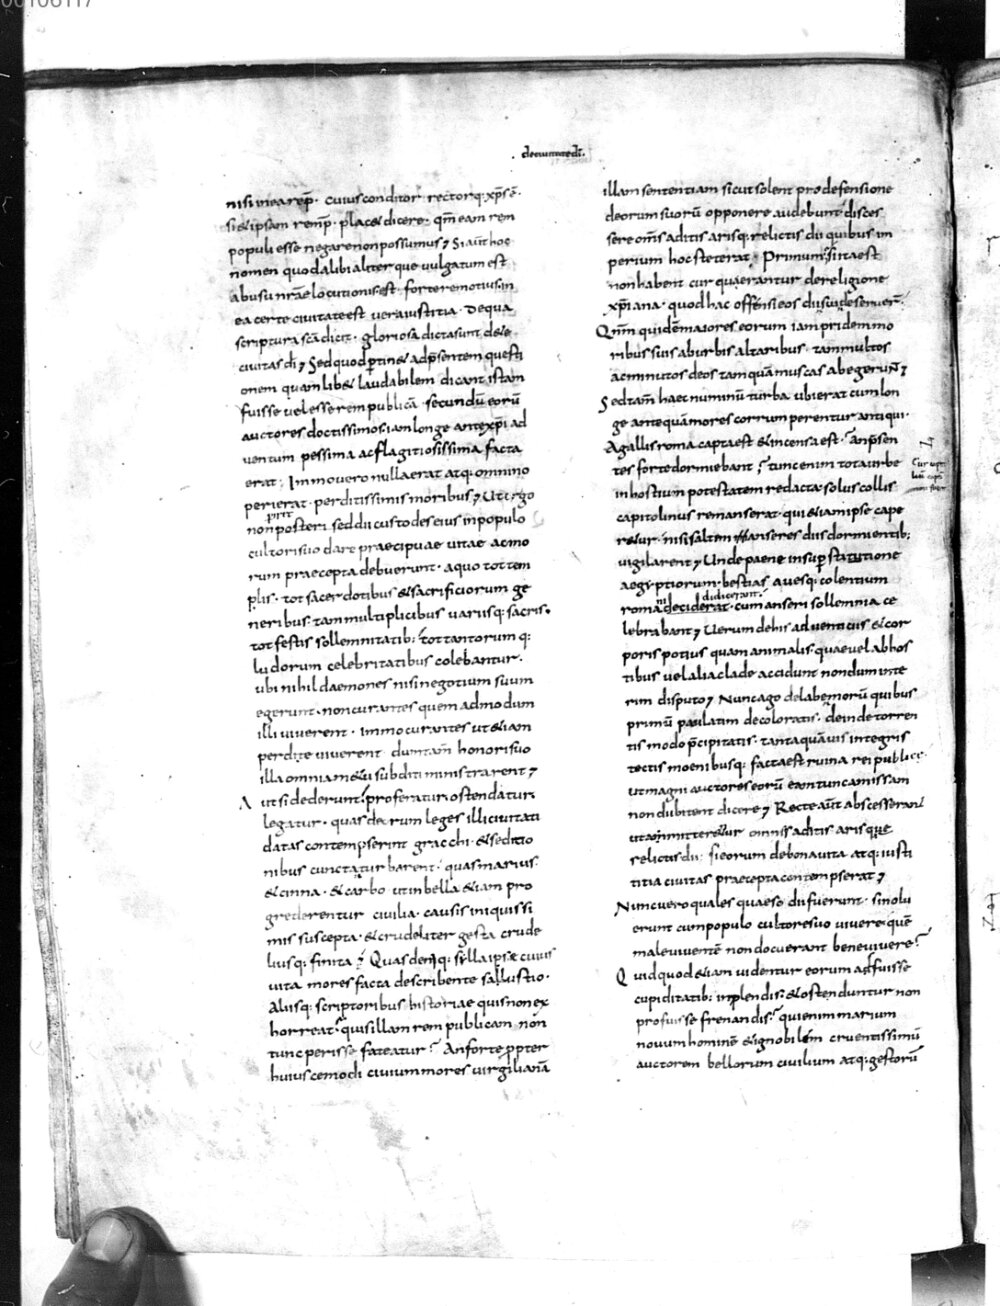 00106117
deciuitatedī.
nisi inea rep̄· cuius conditor rectorq; xp̄s ē·
si & ipsam remp̄· plac& dicere· qm̄ eam rem
populi esse negare non possumus; Si aūt hoc
nomen quod alibi aliter que vulgatum est
ab usu nr̄ae locutionis est· forte remotius· in
ea certe ciuitate est vera iustitia· De qua
scriptura sc̄a dicit· gloriosa dicta sunt de te
ciuitas dī; Sed quod p̄tin& ad p̄sentem questi
onem quam lib& laudabilem dicant istam
fuisse uel esse rem publicā· secundū eorū
auctores doctissimos· iam longe ante xp̄i ad
uentum pessima ac flagitiosissima facta
erat; Immo uero nulla erat atq; omnino
perierat· perditissimis moribus; Ut ergo
non posteri sed dii custodes eius in populo
cultori suo dare praecipuae uitae ac mo
rum praecepta debuerunt· a quo tot tem
plis· tot sacerdotibus & sacrificiorum ge
neribus· tam multiplicibus variisq; sacris·
tot festis sollemnitatib; tot tantorum q;
ludorum celebritatibus colebantur·
ubi nihil daemones nisi negotium suum
egerunt· non curantes quem ad modum
illi viuerent· immo curantes ut &iam
perdite viuerent· dum tam̄ honori suo
illa omnia m&u subditi ministrarent;
Aut si dederunt· proferatur· ostendatur·
legatur· quas deorum leges illi ciuitati
datas contempserint gracchi· & seditio
nibus cuncta turbarent· quas marius
& cinna· & carbo ut in bella &iam pro
grederentur ciuilia· causis iniquissi
mis suscepta· & crudeliter gesta crude
liusq; finita? Quas deniq; sylla ipse cuius
vita mores facta describente sallustio·
Aliisq; scriptoribus historiae quis non ex
horreat? quis illam rem publicam non
tunc perisse fateatur? An forte ꝓpter
huiuscemodi ciuium mores virgilianā
illam sententiam sicut solent pro defensione
deorum suorū opponere audebunt· disces
sere om̄s aditis arisq; relictis dii quibus im
perium hoc steterat; Primum si ita est
non habent cur quaerantur de religione
xp̄iana· quod hac offensi eos dii sui deseruer̄·
Qm̄ quidē maiores eorum iam pridem mo
ribus suis ab urbis altaribus tam multos
ac minutos deos tamquā muscas abegerun̄;
Sed tam̄ haec numinū turba ubi erat cum lon
ge antequā mores corrumperentur antiqui·
A gallis roma capta est & incensa est· An p̄sen
tes forte dormiebant? tunc enim tota urbe
in hostium potestatem redacta· solus collis
capitolinus remanserat· qui &iam ipse cape
retur· nisi saltem anseres diis dormientib;
vigilarent; Unde paene in sup̄stitutione
aegyptiorum· bestias auesq; colentium
didicerant·
roma deciderat· cum anseri sollemnia ce
lebrabant; Uerum de his aduenticiis & cor
poris potius quam animalis· quae uel ab hos
tibus uel alia clade accidunt nondum inte
rim disputo; Nunc ago de labe morū quibus
primū paulatim decoloratis· deinde torren
tis modo p̄cipitatis· tanta quāuis integris
tectis moenibusq; facta est ruina rei publice·
ut magni auctores eorū eam tunc amissam
non dubitent dicere; Recte aūt abscesseran̄
omnis aditis arisque
relictis dii· si eorum de bona uita atq; iusti
titia ciuitas praecepta contempserat;
Nunc uero quales quaeso dii fuerunt· si nolu
erunt cum populo cultore suo viuere· quē
male viuentē non docuerant bene viuere?
Quid quod &iam uidentur eorum adfuisse
cupiditatib; inplendis· & ostenduntur non
profuisse frenandis? qui enim marium
nouum hominē & ignobilem cruentissimū
auctorem bellorum ciuilium atq; gestorū